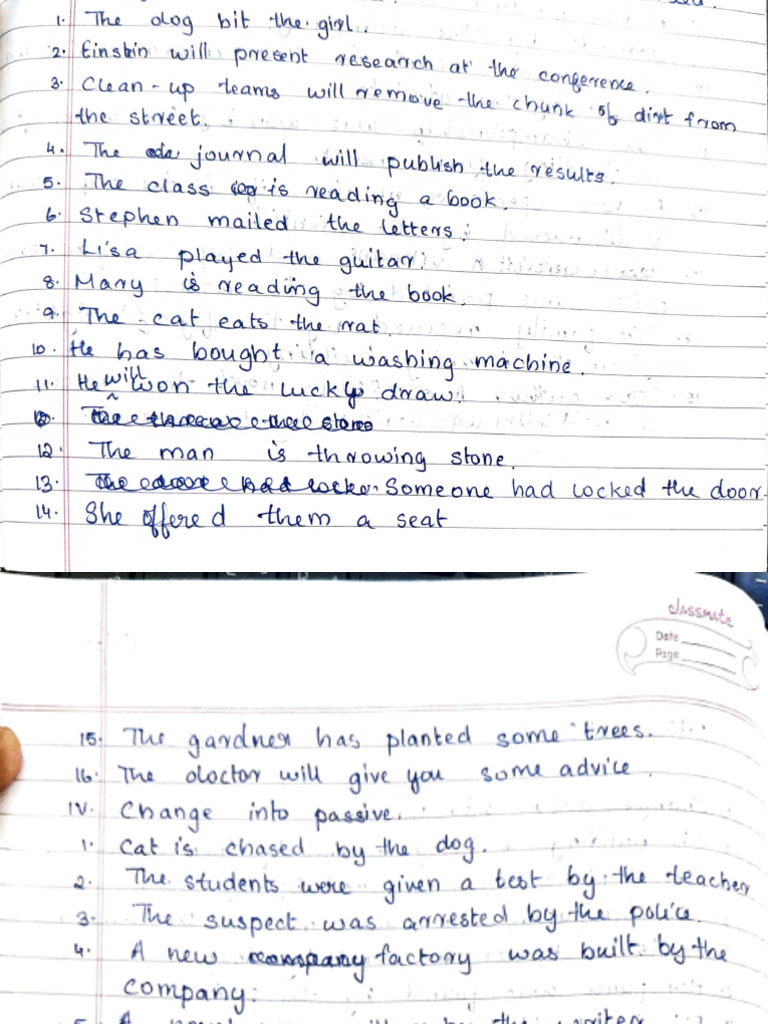 1. The dog bit the girl.
2. Einstein will present research at the conference.
3. Clean-up teams will remove the chunk of dirt from
the street.
4. The journal will publish the results.
5. The class is reading a book.
6. Stephen mailed the letters.
7. Lisa played the guitar.
8. Mary is reading the book.
9. The cat eats the rat.
10. He has bought a washing machine.
11. He will won the lucky draw.
12. The man is throwing stone.
13. Someone had locked the door.
14. She offered them a seat
classmate
Date
Page
15. The gardner has planted some trees.
16. The doctor will give you some advice.
IV. Change into passive.
1. Cat is chased by the dog.
2. The students were given a test by the teacher
3. The suspect was arrested by the police.
4. A new factory was built by the
company.
5. A by the writer